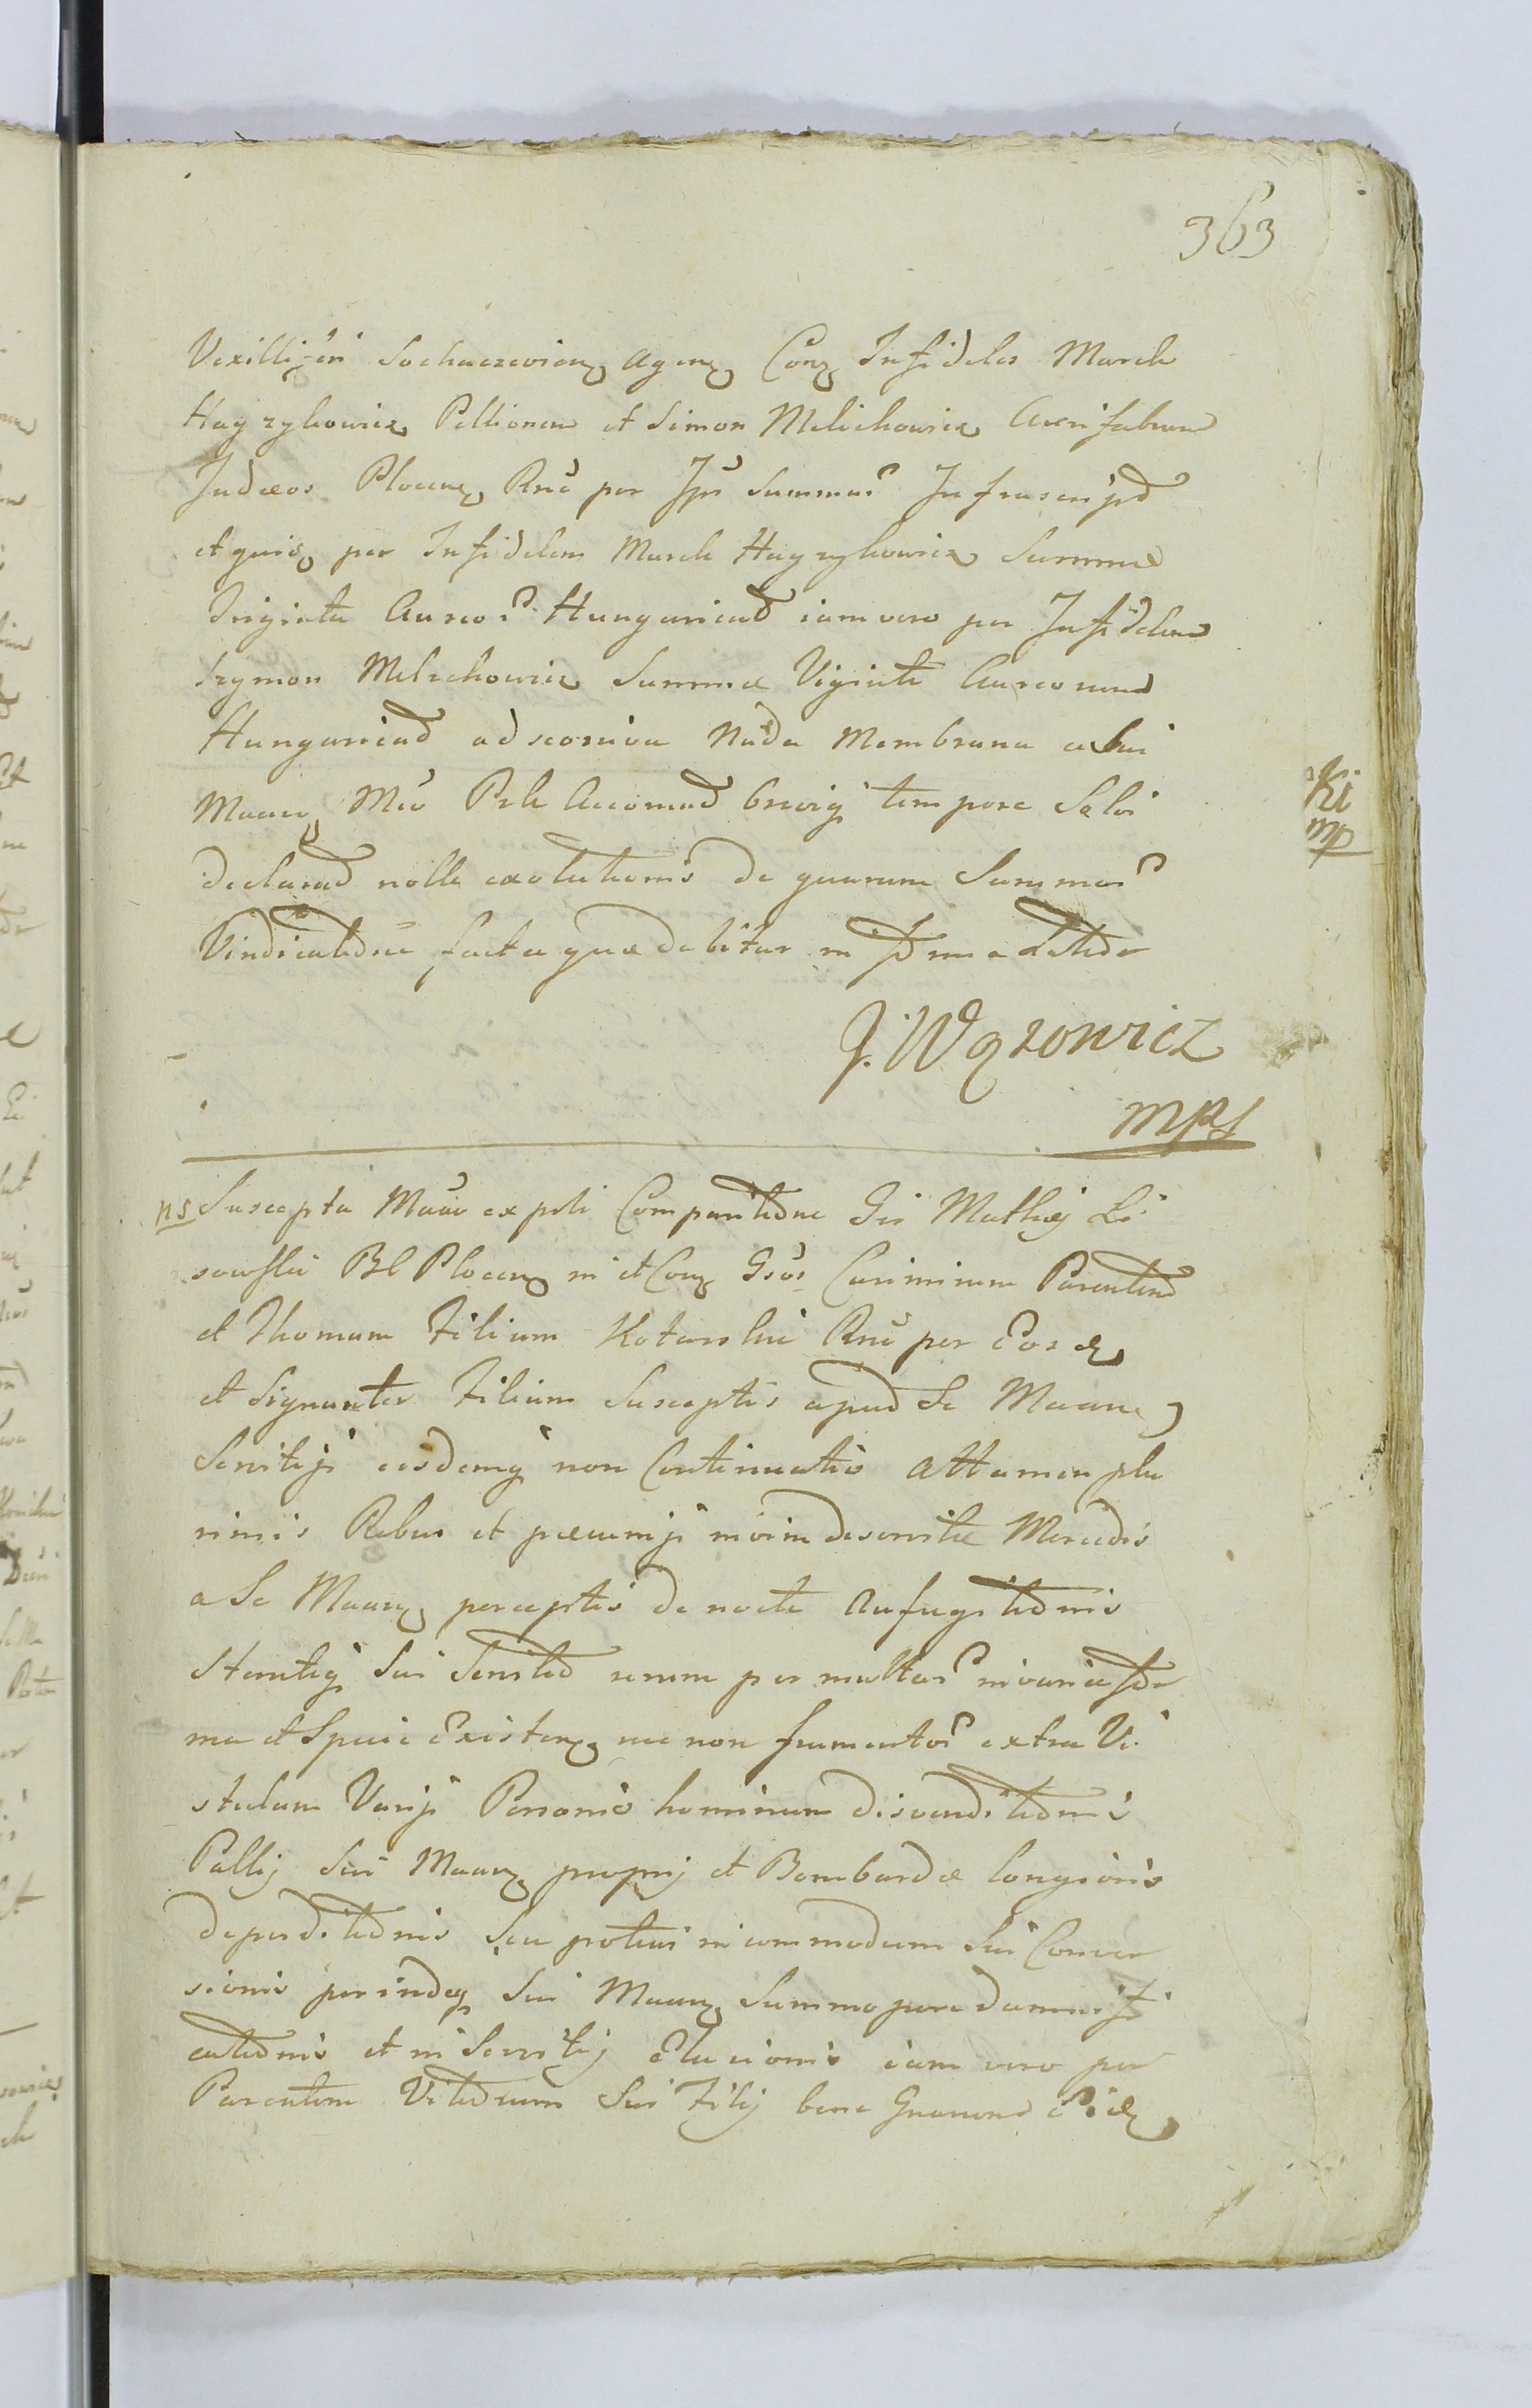 363
Vexilliferi Sochaczevien Agen Con Infideles Marek
Hayzykowicz Pellionem et Simon Melichowicz Aurifabrum
Judæos Plocen Rne per Ips Summar Infrascript
et quis per Infidelem Marek Hayzykowicz Summæ
Triginta Aureor Hungarical iam vero per Infidelem
Szymon Melichowicz Summæ Viginti Aureorum
Hungarical ad Nuda Membrana
Maan Mco Acomod brevi tempore Solvi
declarat nolle exolutionis de quarum Summar
Vindicatione facta quæ debitur in
J. Wązowicz
mps
ns Suscepta Mco ex psti Comparitione Gsi Mathiæ Li
sowski Bl Plocen in et Con Gsos Casimirum Parentem
et Thomam Filium Kotarski Rne per Eosd
et Signanter Filium Susceptis apud Se Maan
Servitijs eisdemq non Continuatis Attamen plu
rimis Rebus et pecunijs in vim deservitæ Mercedis
a Se Maan perceptis de nocte Aufugitionis
Stantiq Sui Servitio rerum per multar in varia for
ma et Specie Existen nec non frumentor extra Vi
stulam Varijs Personis hominum disvenditionis
Pallij Sui Maan proprij et Bombardæ longioris
deperditionis Seu potius in commodum Sui Conver
sionis perindeq Sui Maan Summopere damnifi
cationis et in Servitij Elusionis iam vero per
Parentem Vitiorum Sui Filij bene Gnarum